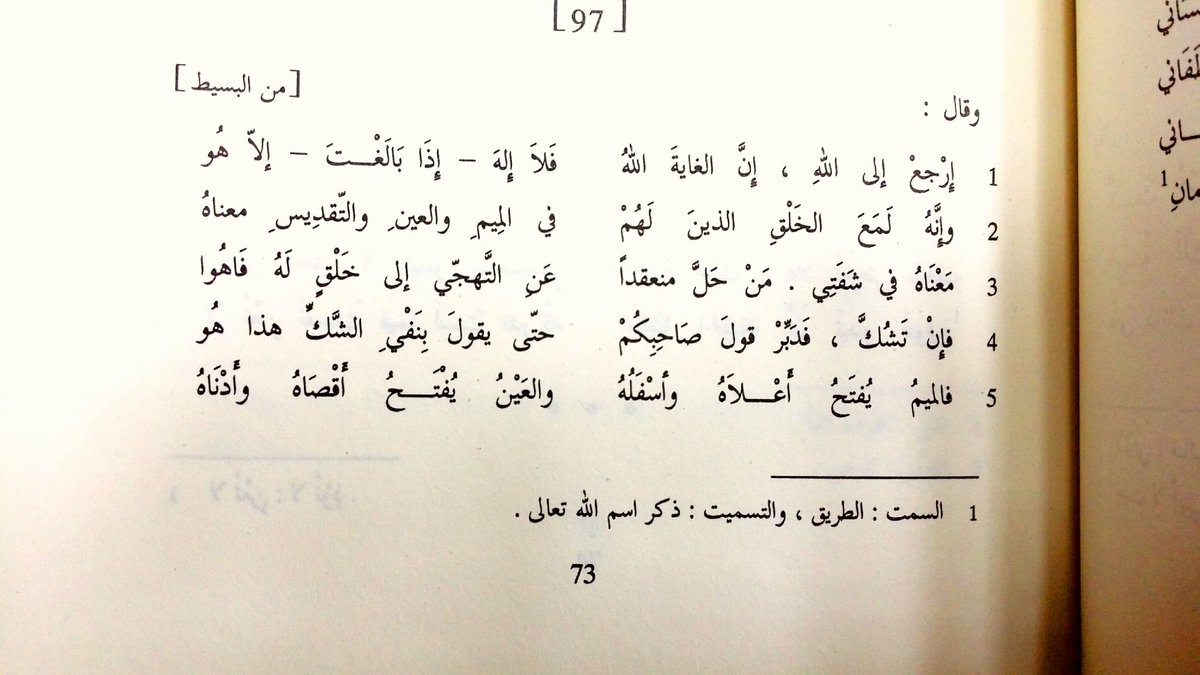 [ 97 ]
[ من البسيط ]
وقال :
1 إِرْجِعْ إلى اللهِ ، إِنَّ الغايةَ اللهُ فَلاَ إِلهَ – إِذَا بَالَغْـــتَ – إلاّ هُو
2 وإِنَّهُ لَمَعَ الخَلْقِ الذينَ لَهُمْ في المِيمِ والعينِ والتّقدِيسِ معناهُ
3 مَعْنَاهُ في شَفَتِي . مَنْ حَلَّ منعقداً عَنِ التَّهجّي إلى خَلْقٍ لَهُ فَاهُوا
4 فإِنْ تَشُكَّ ، فَدَبِّرْ قولَ صَاحِبِكُمْ حتّى يقولَ بِنَفْيِ الشَّكِّ هذا هُو
5 فالميمُ يُفتَحُ أَعْـــلاَهُ وأسْفَلُهُ والعَيْنُ يُفْتَـــحُ أَقْصَاهُ وأَدْنَاهُ
1 السمت : الطريق ، والتسميت : ذكر اسم الله تعالى .
73